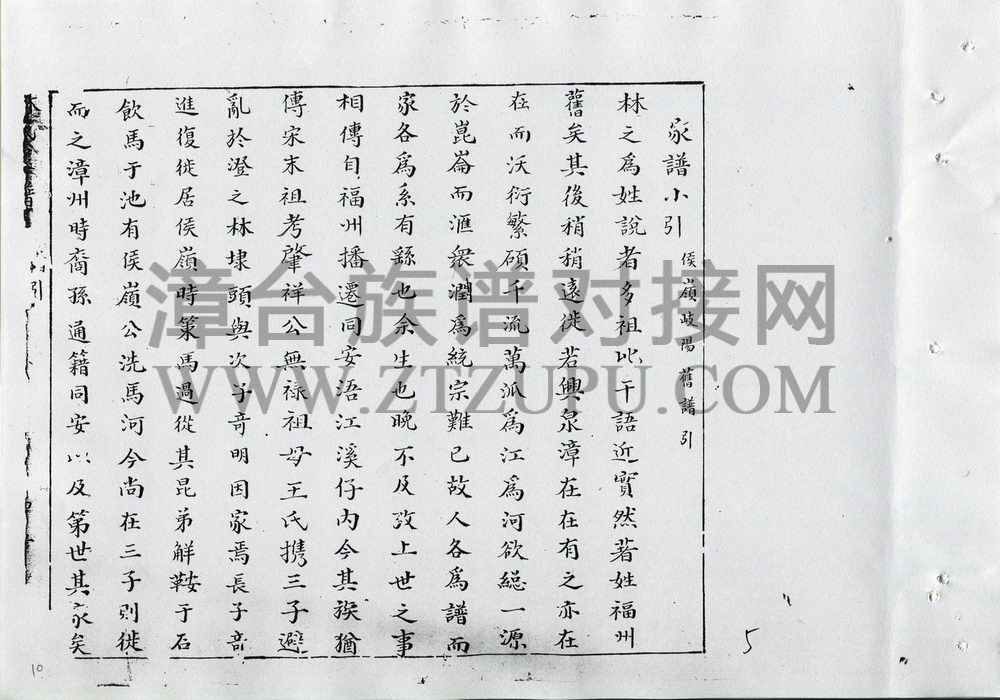 家譜小引 侯嶺岐陽舊譜引
林之爲姓說者多祖比干語近實然著姓福州
舊矣其後稍稍遠徙若興泉漳在在有之亦在
在而沃衍繁碩千流萬派爲江爲河欲總一源
於崑崙而滙衆潤爲統宗難已故人各爲譜而
家各爲系有繇也余生也晚不及攷上世之事
相傳自福州播遷同安浯江溪仔內今其族猶
傳宋末祖考肇祥公無祿祖母王氏携三子避
亂於澄之林埭頭與次子竒明因家焉長子竒
進復徙居侯嶺時策馬過從其昆弟解鞍于石
飲馬于池有侯嶺公洗馬河今尚在三子則徙
而之漳州時裔孫通籍同安以及第世其家矣
引
漳台族谱对接网
WWW.ZTZUPU.COM
5
10